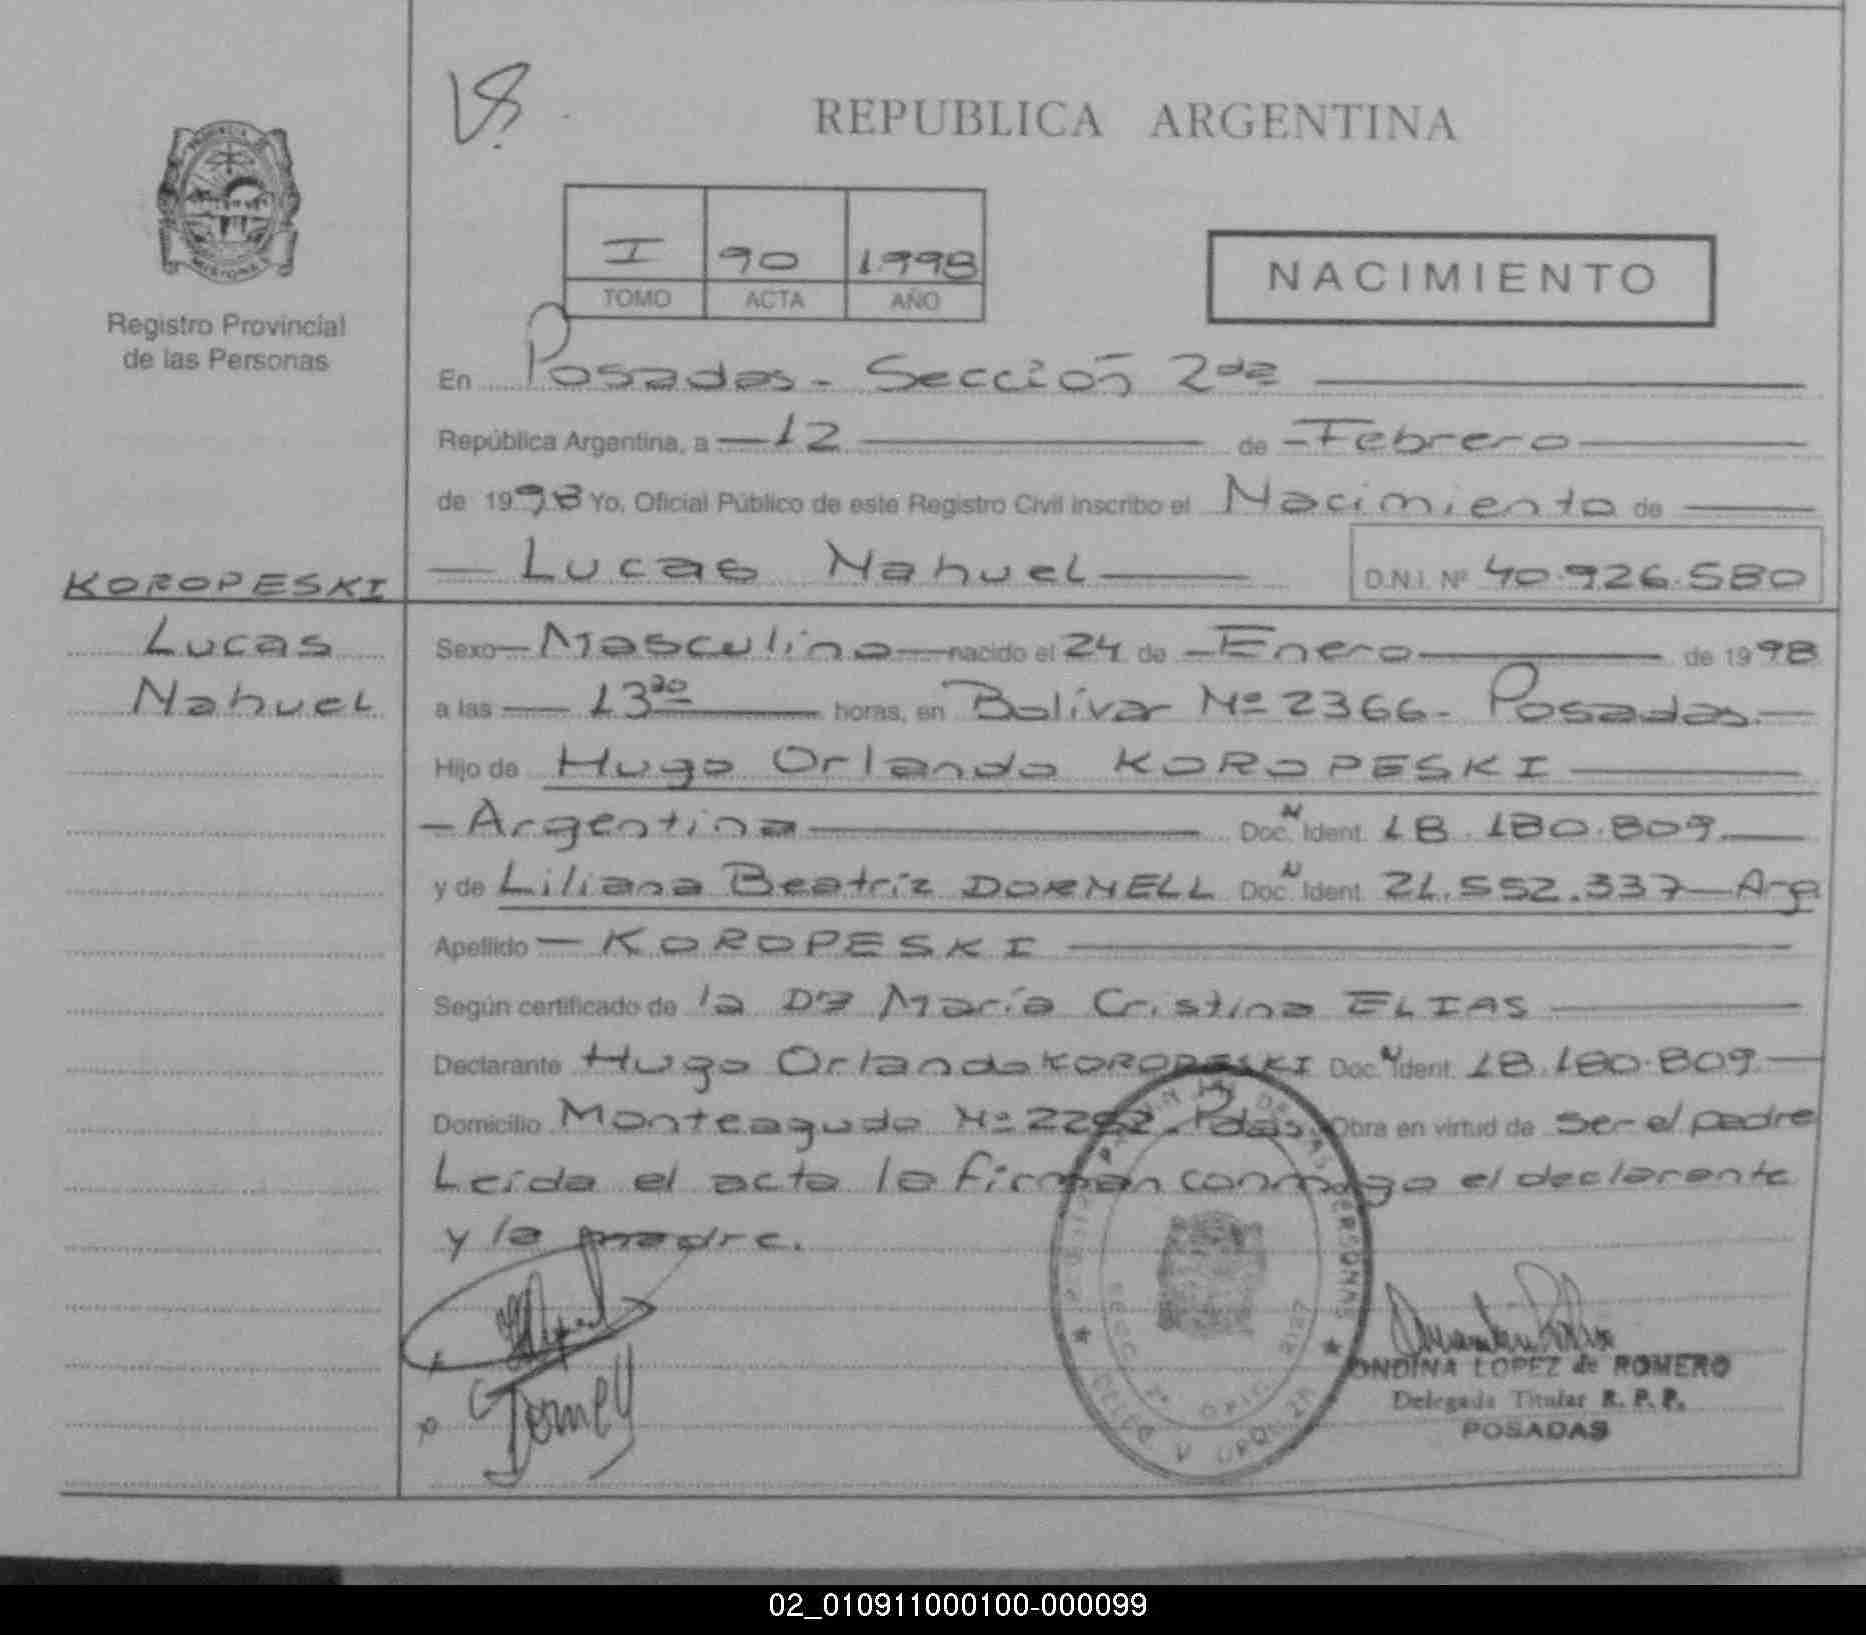 REPUBLICA ARGENTINA
I 90 1998
TOMO ACTA AÑO
NACIMIENTO
Registro Provincial
de las Personas
En Posadas - Sección 2da
República Argentina, a 12 de Febrero
de 1998 Yo, Oficial Público de este Registro Civil inscribo el Nacimiento de
Lucas Nahuel D.N.I. Nº 40.926.580
KOROPESKI
Lucas
Nahuel
Sexo Masculino nacido el 24 de Enero de 1998
a las 13 30 horas, en Bolívar Nº 2366 - Posadas
Hijo de Hugo Orlando KOROPESKI
Argentina Doc. N Ident. 18.180.809
y de Liliana Beatríz DORNELL Doc. N Ident. 21.552.337 Arg
Apellido KOROPESKI
Según certificado de la Dra María Cristina ELIAS
Declarante Hugo Orlando KOROPESKI Doc. N Ident. 18.180.809
Domicilio Monteagudo Nº 2282. Pdas. Obra en virtud de ser el padre
Leída el acta la firman conmigo el declarante
y la madre.
ONDINA LOPEZ de ROMERO
Delegada Titular R. P. P.
POSADAS
02_010911000100-000099